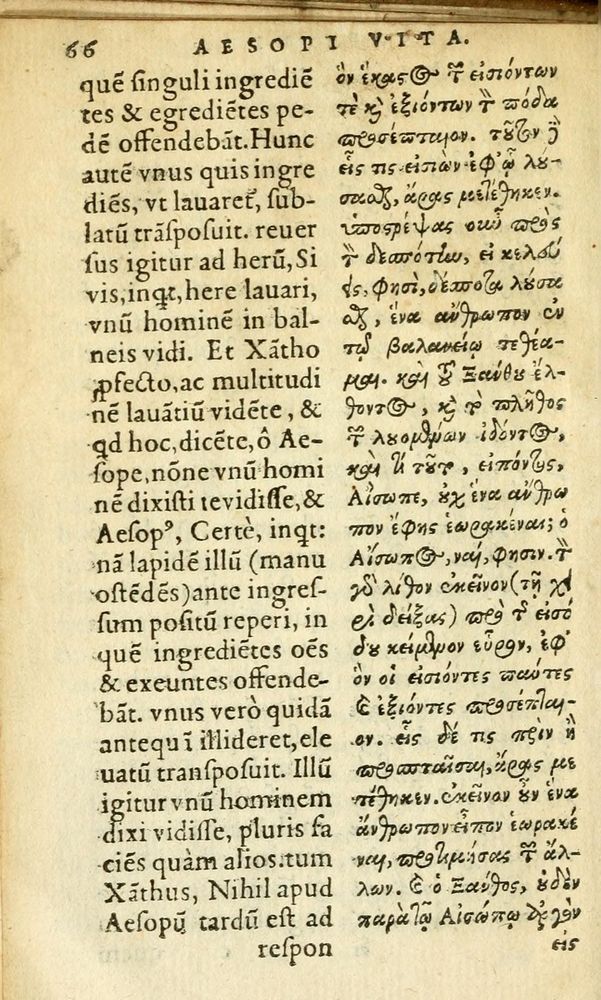 66 AESOPI VITA.
quē ſinguli ingrediē
tes & egrediētes pe-
dē offendebāt. Hunc
autē vnus quis ingre
diēs, vt lauaret, ſub-
latū trāſpoſuit. reuer
ſus igitur ad herū, Si
vis, inqt, here lauari,
vnū hominē in bal-
neis vidi. Et Xātho
ꝓfecto, ac multitudi
nē lauātiū vidēte, &
qd hoc, dicēte, ô Ae-
ſope, nōne vnū homi
nē dixiſti te vidiſſe, &
Aeſopꝰ, Certè, inqt:
nā lapidē illū (manu
oſtēdēs) ante ingreſ-
ſum poſitū reperi, in
quē ingrediētes oēs
& exeuntes offende-
bāt. vnus verò quidā
antequā illideret, ele
uatū tranſpoſuit. Illū
igitur vnū hominem
dixi vidiſſe, pluris fa
ciēs quàm alios. tum
Xāthus, Nihil apud
Aeſopū tardū eſt ad
reſpon
ὃν ἕκαστος τῶν εἰσιόντων
τε καὶ ἐξιόντων τὸν πόδα
προσέπταιον. τοῦτον δὲ
εἷς τις εἰσιὼν ἐφ' ᾧ λού-
σασθαι, ἄρας μετέθηκεν.
ὑποστρέψας οὖν πρὸς
τὸν δεσπότην, εἰ κελεύ
εις, φησὶ, δέσποτα λούσα
σθαι, ἕνα ἄνθρωπον ἐν
τῷ βαλανείῳ τεθέα-
μαι. καὶ τοῦ Ξάνθου ἐλ-
θόντος, καὶ τὸ πλῆθος
τῶν λουομένων ἰδόντος,
καὶ τί τοῦτο, εἰπόντος,
Αἴσωπε, οὐχ ἕνα ἄνθρω
πον ἔφης ἑωρακέναι; ὁ
Αἴσωπος, ναί, φησιν. τὸν
γὰρ λίθον ἐκεῖνον (τῇ χει
ρὶ δείξας) πρὸ τοῦ εἰσό
δου κείμενον εὗρον, ἐφ'
ὃν οἱ εἰσιόντες πάντες
καὶ ἐξιόντες προσέπται-
ον. εἷς δέ τις πρὶν ἢ
προσπταῖσαι, ἄρας με
τέθηκεν. ἐκεῖνον οὖν ἕνα
ἄνθρωπον εἶπον ἑωρακέ
ναι, προτιμήσας τῶν ἄλ-
λων. καὶ ὁ Ξάνθος, οὐδὲν
παρὰ τῷ Αἰσώπῳ ἀργὸν
εἰς